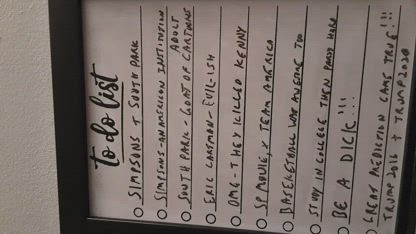 to do list
SIMPSONS + SOUTH PARK
SIMPSONS - AN AMERICAN INSTITUTION
SOUTH PARK - GOAT OF ADULT CARTOONS
ERIC CARTMAN - EVIL-ISH
OMG - THEY KILLED KENNY
SP MOVIE, + TEAM AMERICA
BASEKETBALL WAS AWESOME TOO
STUDY IN COLLEGE THEN PARTY HARD
BE A DICK!!!
GREAT PREDICTION CAME TRUE!!!
TRUMP 2016 + TRUMP 2020